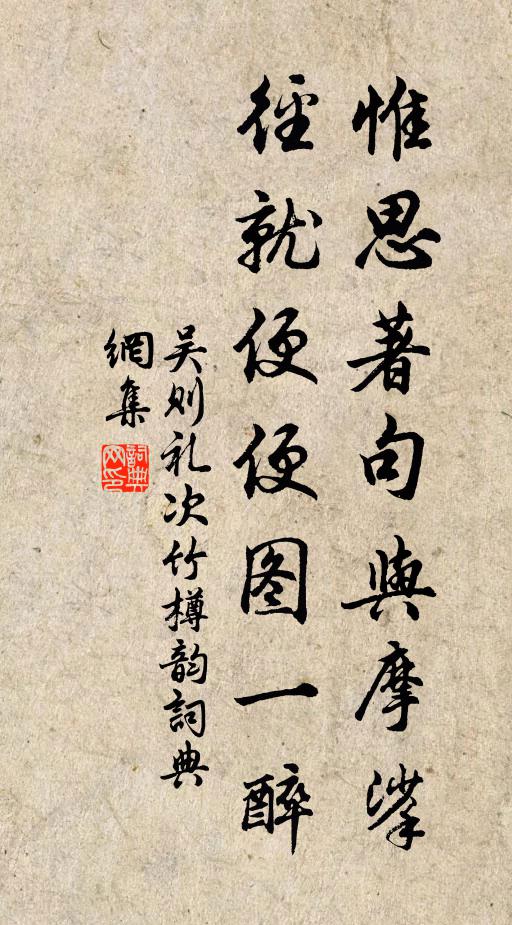 惟思著句與摩挲
径就便便图一醉
吴则礼次竹樽韵詞典
網集
詞典網印